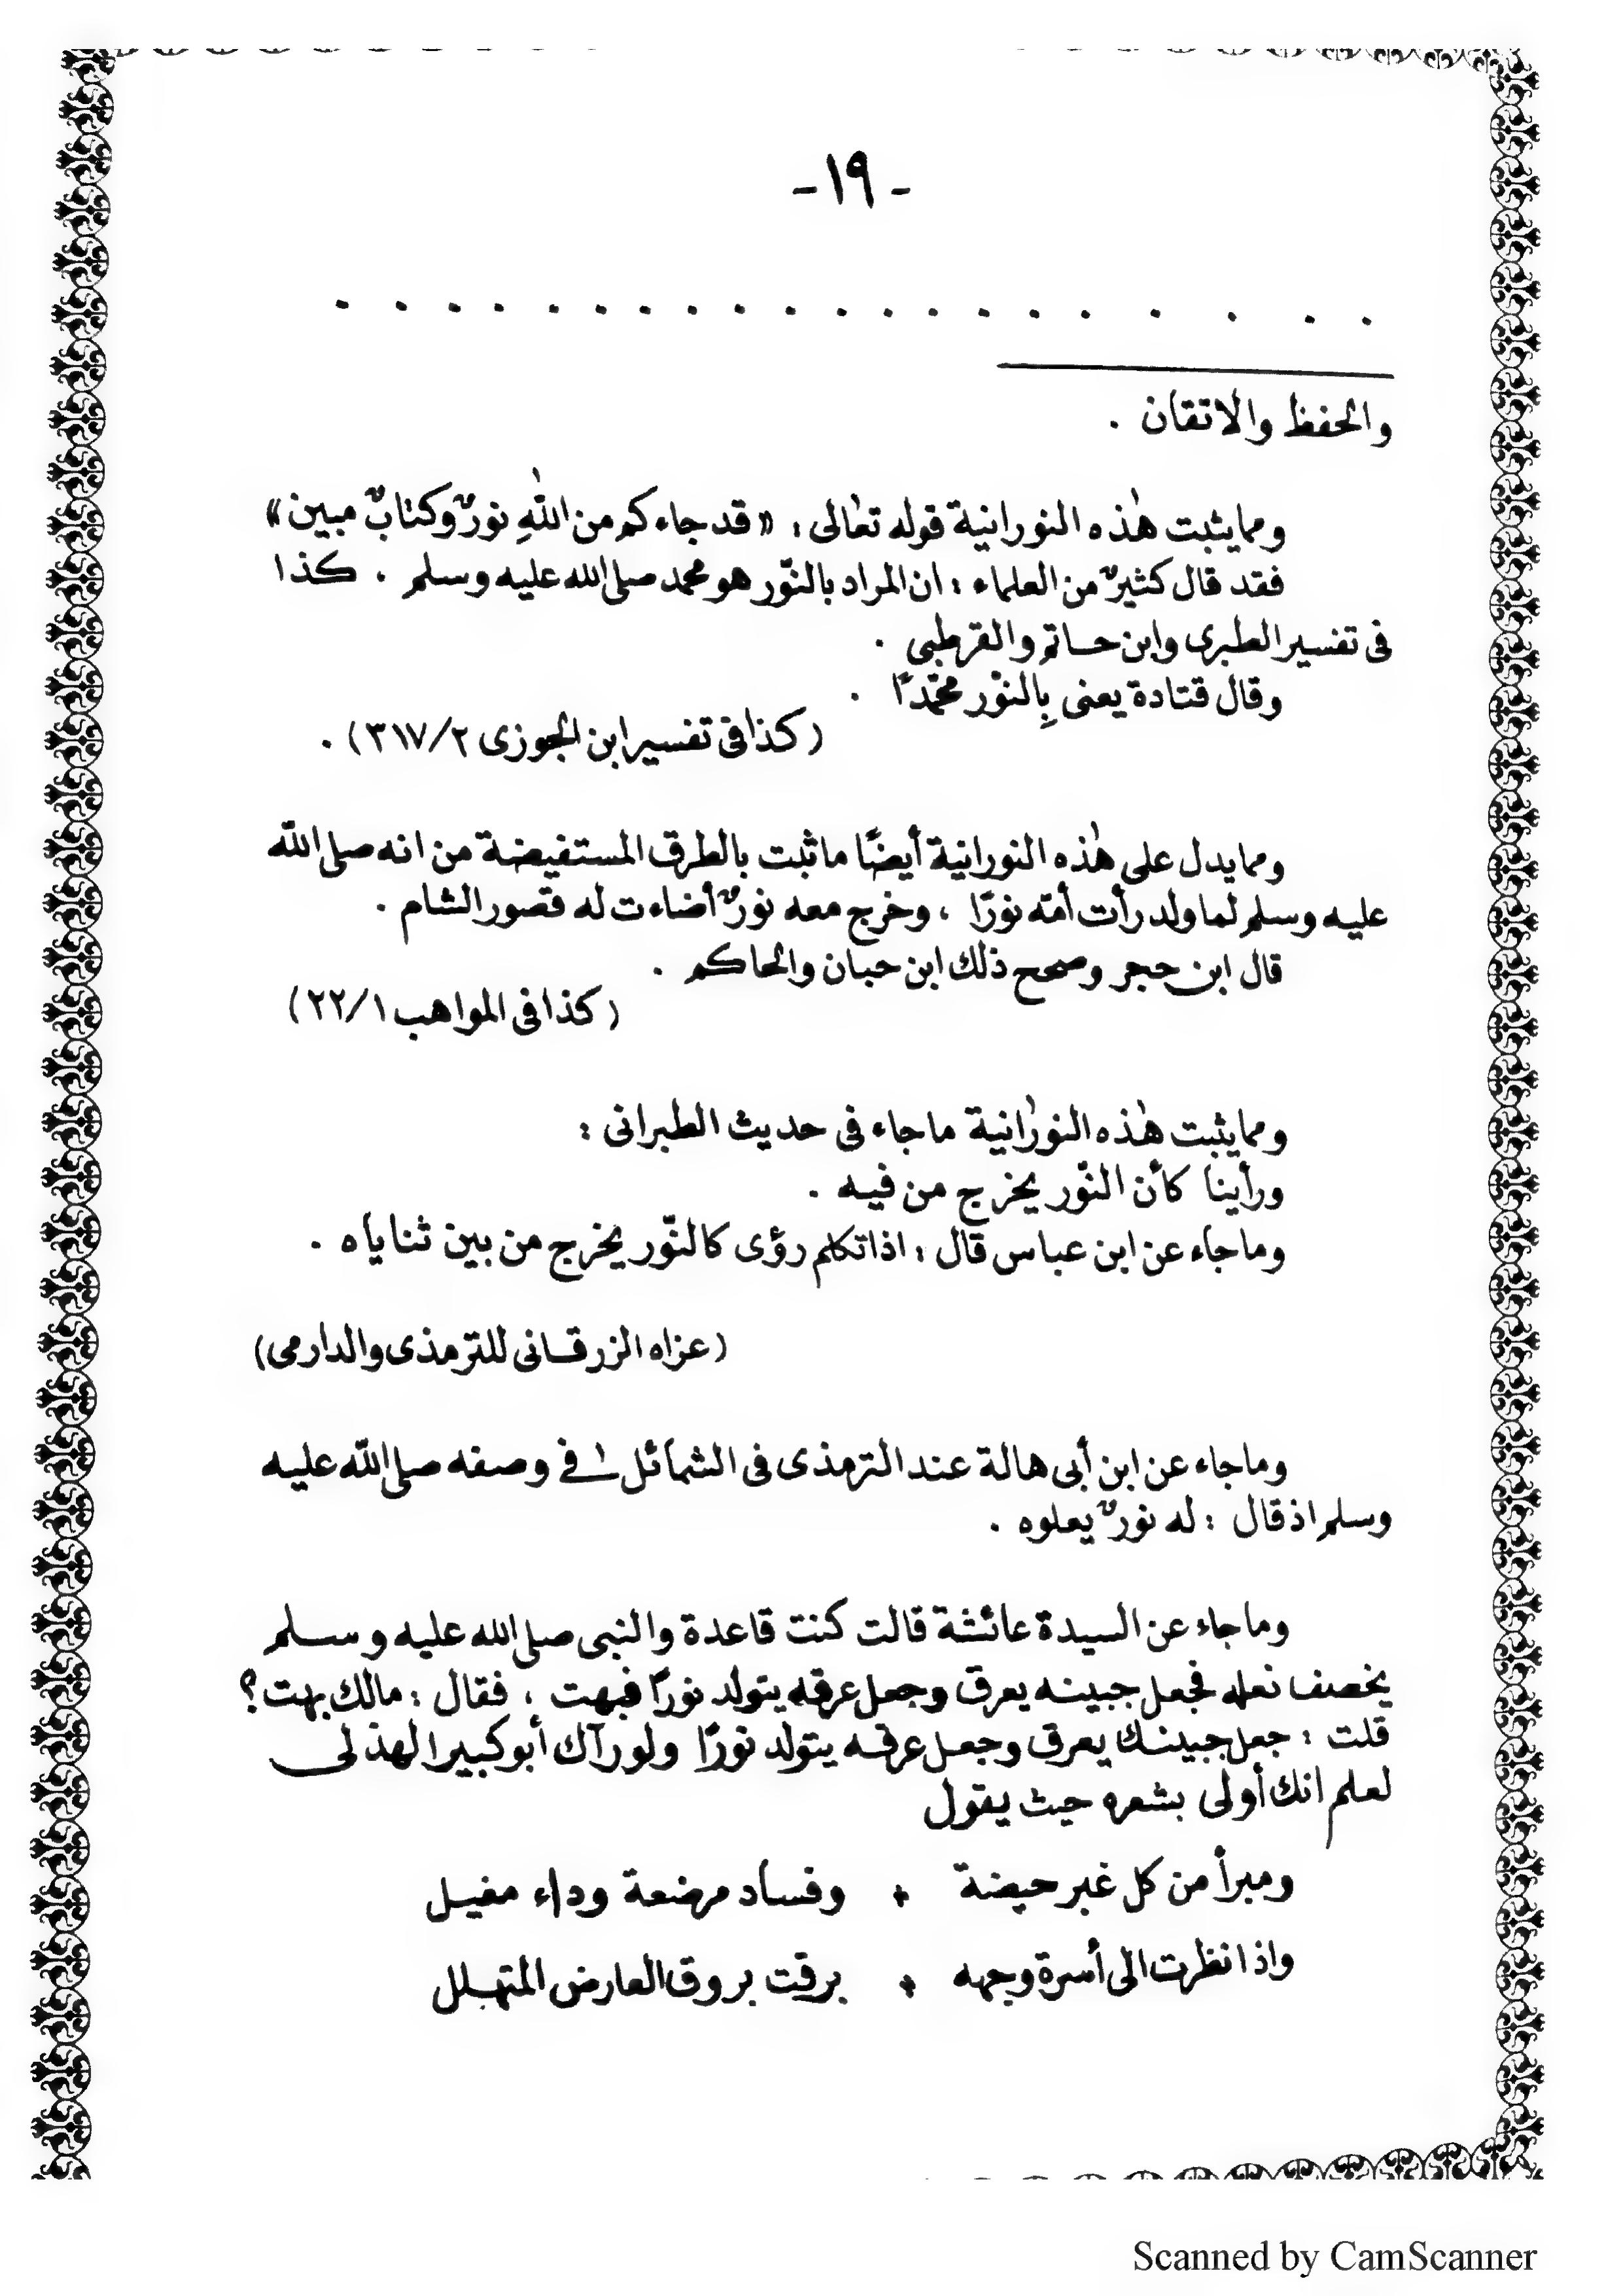 - ١٩ -
. . . . . . . . . . . . . . . . . . . . .
والحفظ والاتقان .
ومما يثبت هٰذه النورانية قوله تعٰالى : « قد جاءكم من اللّٰهِ نورٌ وكتابٌ مبين »
فقد قال كثيرٌ من العلماء : ان المراد بالنّور هو محمد صلى الله عليه وسلم . كذا
فى تفسير الطبرى وابن حاتم والقرطبى .
وقال قتادة يعنى بِالنوْر محمّدًا .
( كذا فى تفسير ابن الجوزى ٣١٧/٢ ) .
ومما يدل على هٰذه النورانية أيضًا ما ثبت بالطرق المستفيضة من انه صلى اللّٰه
عليه وسلم لما ولد رأت أمّه نورًا ، وخرج معه نورٌ أضاءت له قصور الشام .
قال ابن حجر وصحح ذلك ابن حبان والحاكم .
( كذا فى المواهب ٢٢/١ )
ومما يثبت هٰذه النورٰانية ما جاء فى حديث الطبرانى :
ورأينا كأن النّور يخرج من فيه .
وما جاء عن ابن عباس قال : اذا تكلم رؤى كالنّور يخرج من بين ثناياه .
( عزاه الزرقانى للترمذى والدارمى )
وما جاء عن ابن أبى هالة عند الترمذى فى الشمائل فى وصفه صلى اللّٰه عليه
وسلم اذ قال : له نورٌ يعلوه .
وما جاء عن السيدة عائشة قالت كنت قاعدة والنبى صلى الله عليه وسلم
يخصف نعله فجعل جبينه يعرق وجعل عرقه يتولد نورًا فبهت ، فقال : مالك بهت ؟
قلت : جعل جبينك يعرق وجعل عرقه يتولد نورًا ولو رآك أبو كبير الهذلى
لعلم انك أولى بشعره حيث يقول
ومبرأ من كل غبر حيضة ٭ وفساد مرضعة وداء مغيل
واذا نظرت الى أسرة وجهه ٭ برقت بروق العارض المتهلل
Scanned by CamScanner